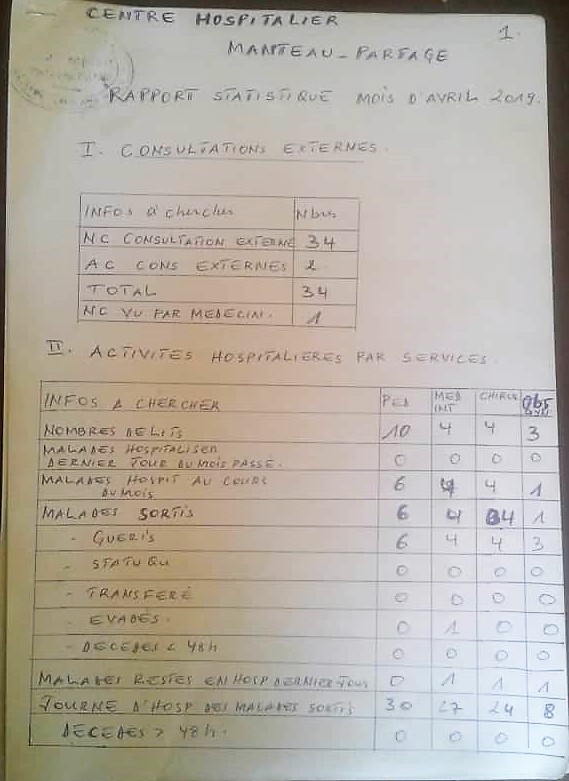 CENTRE HOSPITALIER 1.
MANTEAU-PARTAGE
RAPPORT STATISTIQUE MOIS D'AVRIL 2019.
I. CONSULTATIONS EXTERNES.
INFOS à chercher Nbres
NC CONSULTATION EXTERNE 34
AC CONS EXTERNES 2
TOTAL 34
NC VU PAR MEDECIN. 1
II. ACTIVITES HOSPITALIERES PAR SERVICES.
INFOS A CHERCHER PED MED INT CHIRUR Obst GYN
NOMBRES DE LITS 10 4 4 3
MALADES HOSPITALISER
DERNIER JOUR DU MOIS PASSE. 0 0 0 0
MALADES HOSPIT AU COURS
DU MOIS 6 4 4 1
MALADES SORTIS 6 4 4 1
- GUERIS 6 4 4 3
- STATUQU 0 0 0 0
- TRANSFERÉ 0 0 0 0
- EVADÉS. 0 1 0 0
- DECEDES < 48h 0 0 0 0
MALADES RESTES EN HOSP DERNIER JOUR 0 1 1 1
JOURNE D'HOSP DES MALADES SORTIS 30 27 24 8
DECEDES > 48h. 0 0 0 0